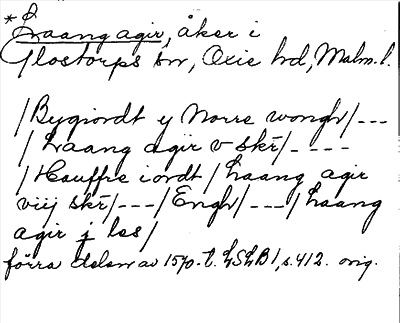 *Laang agir, åker i
Glostorps sn, Oxie hd, Malm. l.
/Bygiordt y Norre wongh/---
/Laang agir v skr/----
/Hauffre iordt/Laang agir
viij skr/---/Engh/---/Laang
agir j les/
förra delen av 1570-t. LSLB1, s. 412. orig.